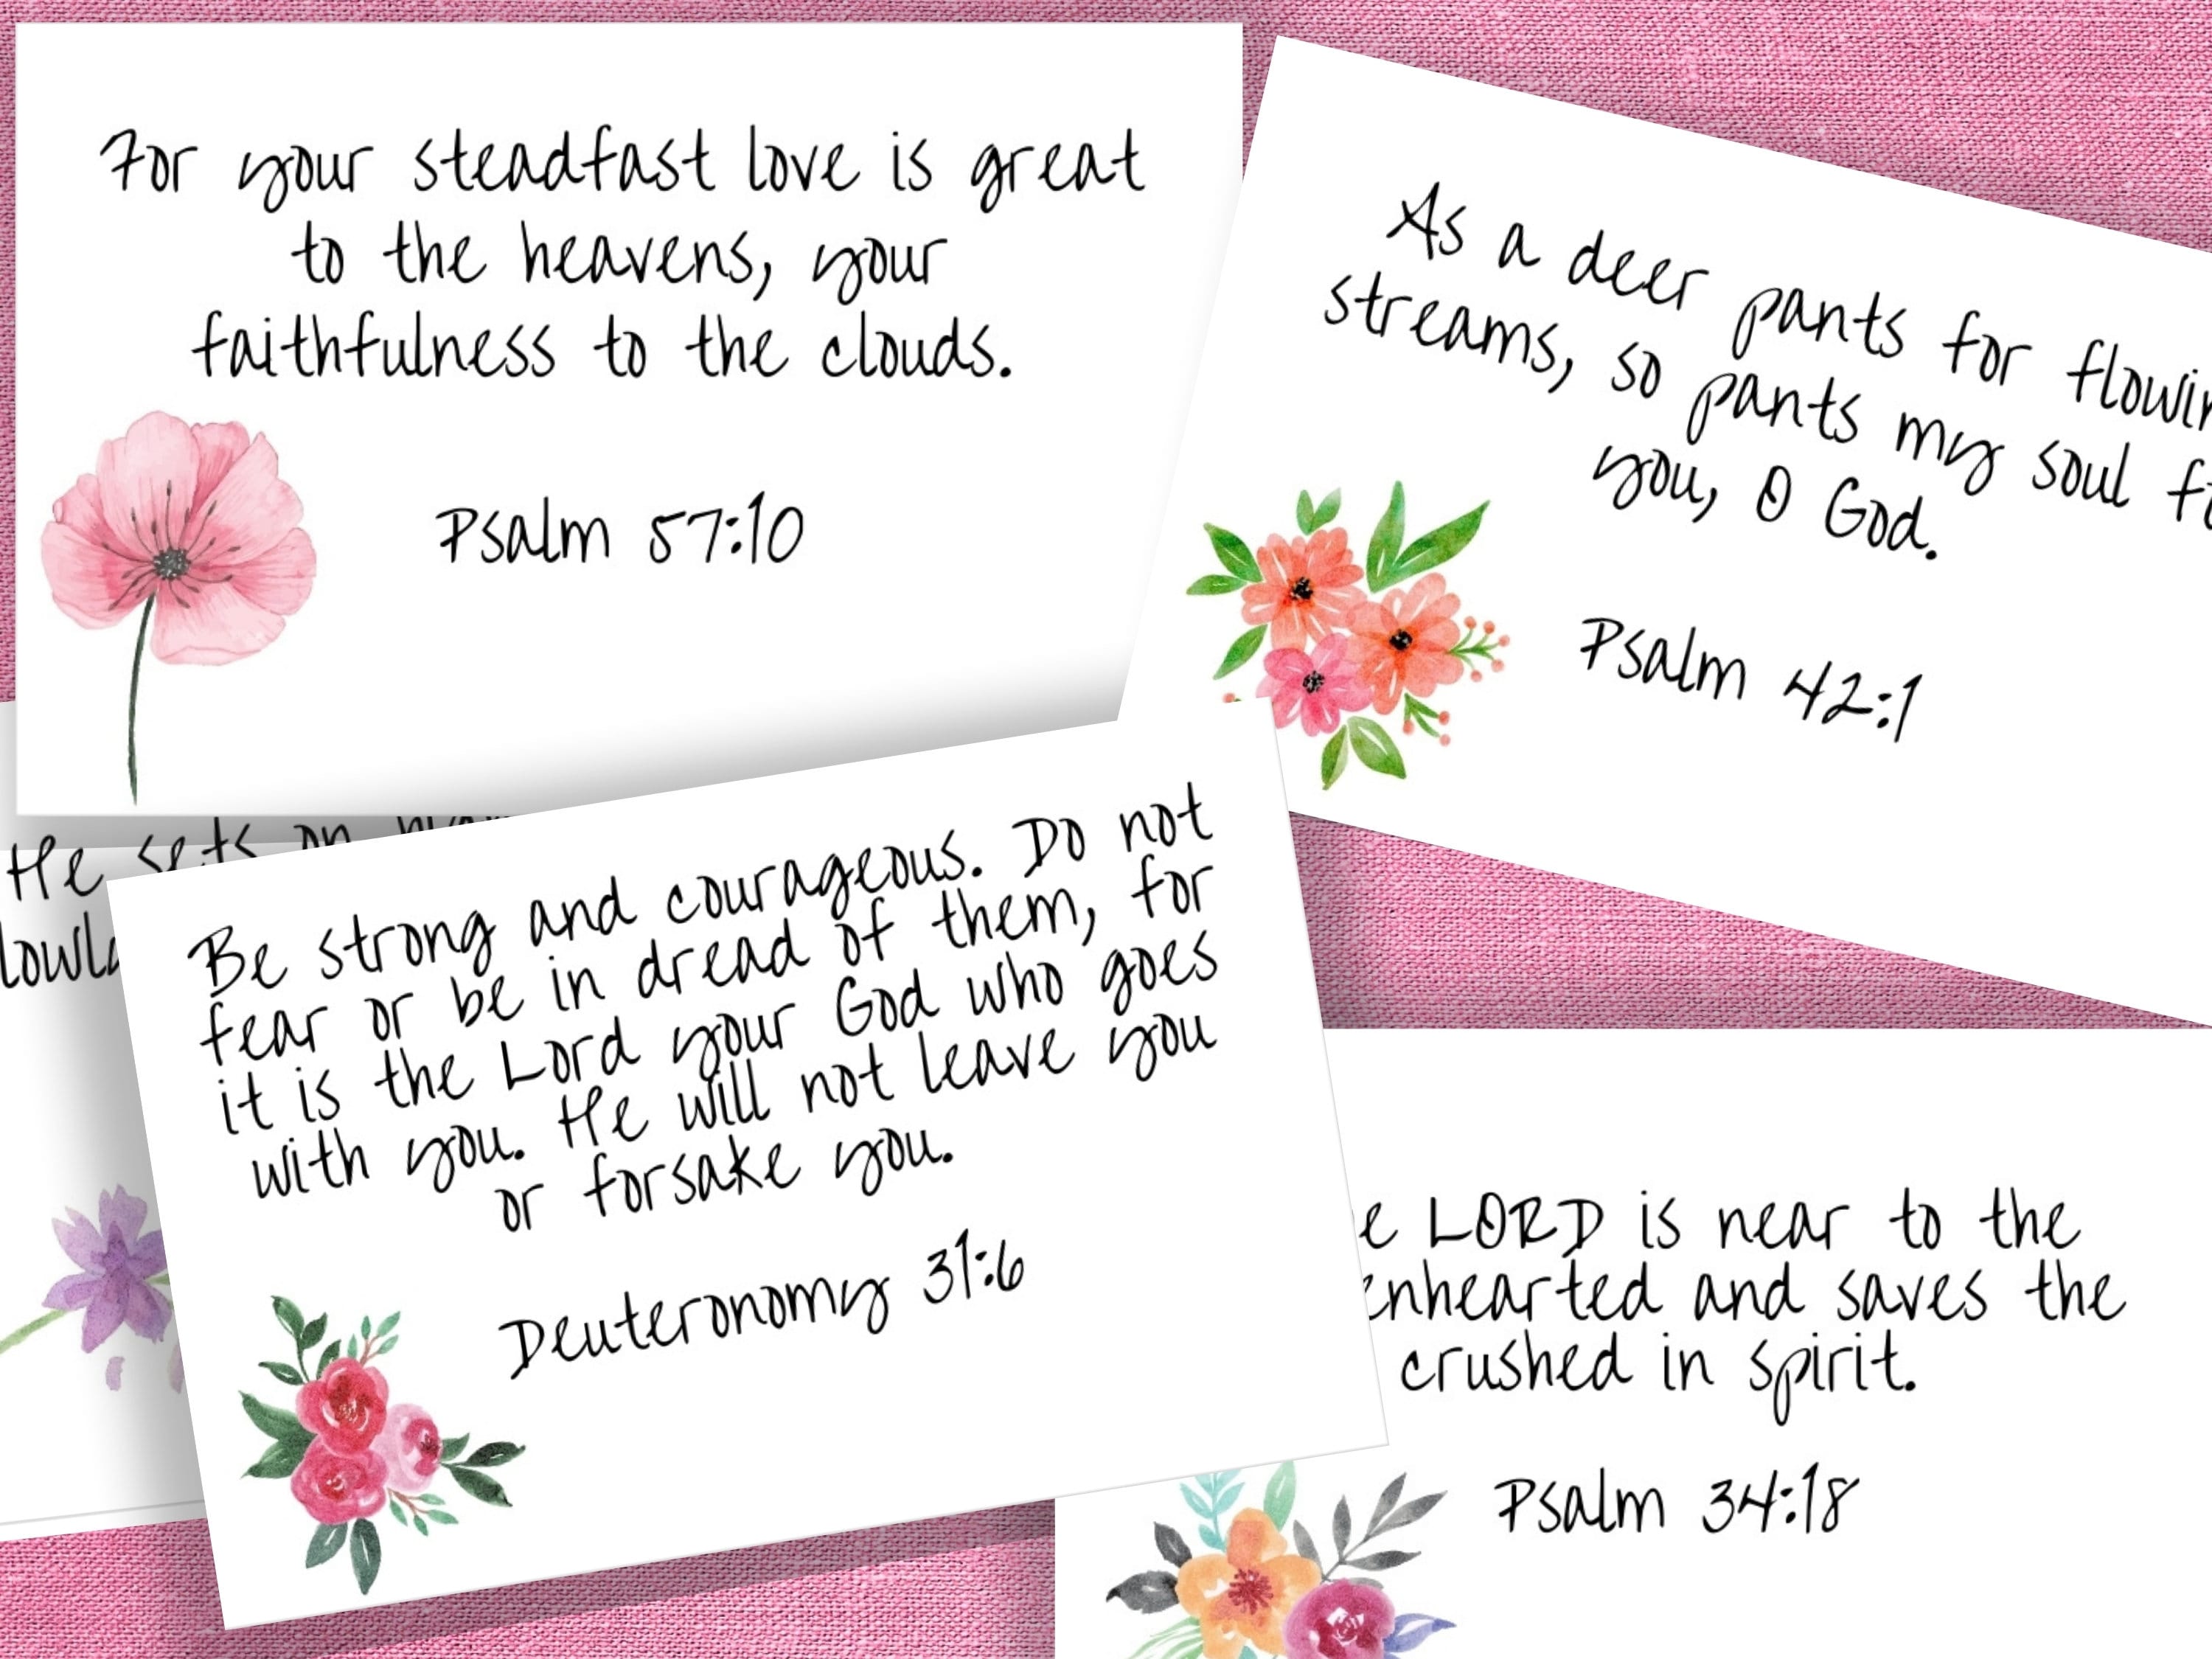 For your steadfast love is great
to the heavens, your
faithfulness to the clouds.
Psalm 57:10
As a deer pants for
streams, so pants my soul
you, O God.
Psalm 42:1
He sets on
Be strong and courageous. Do not
fear or be in dread of them, for
it is the Lord your God who goes
with you. He will not leave you
or forsake you.
Deuteronomy 31:6
LORD is near to the
and saves the
crushed in spirit.
Psalm 34:18